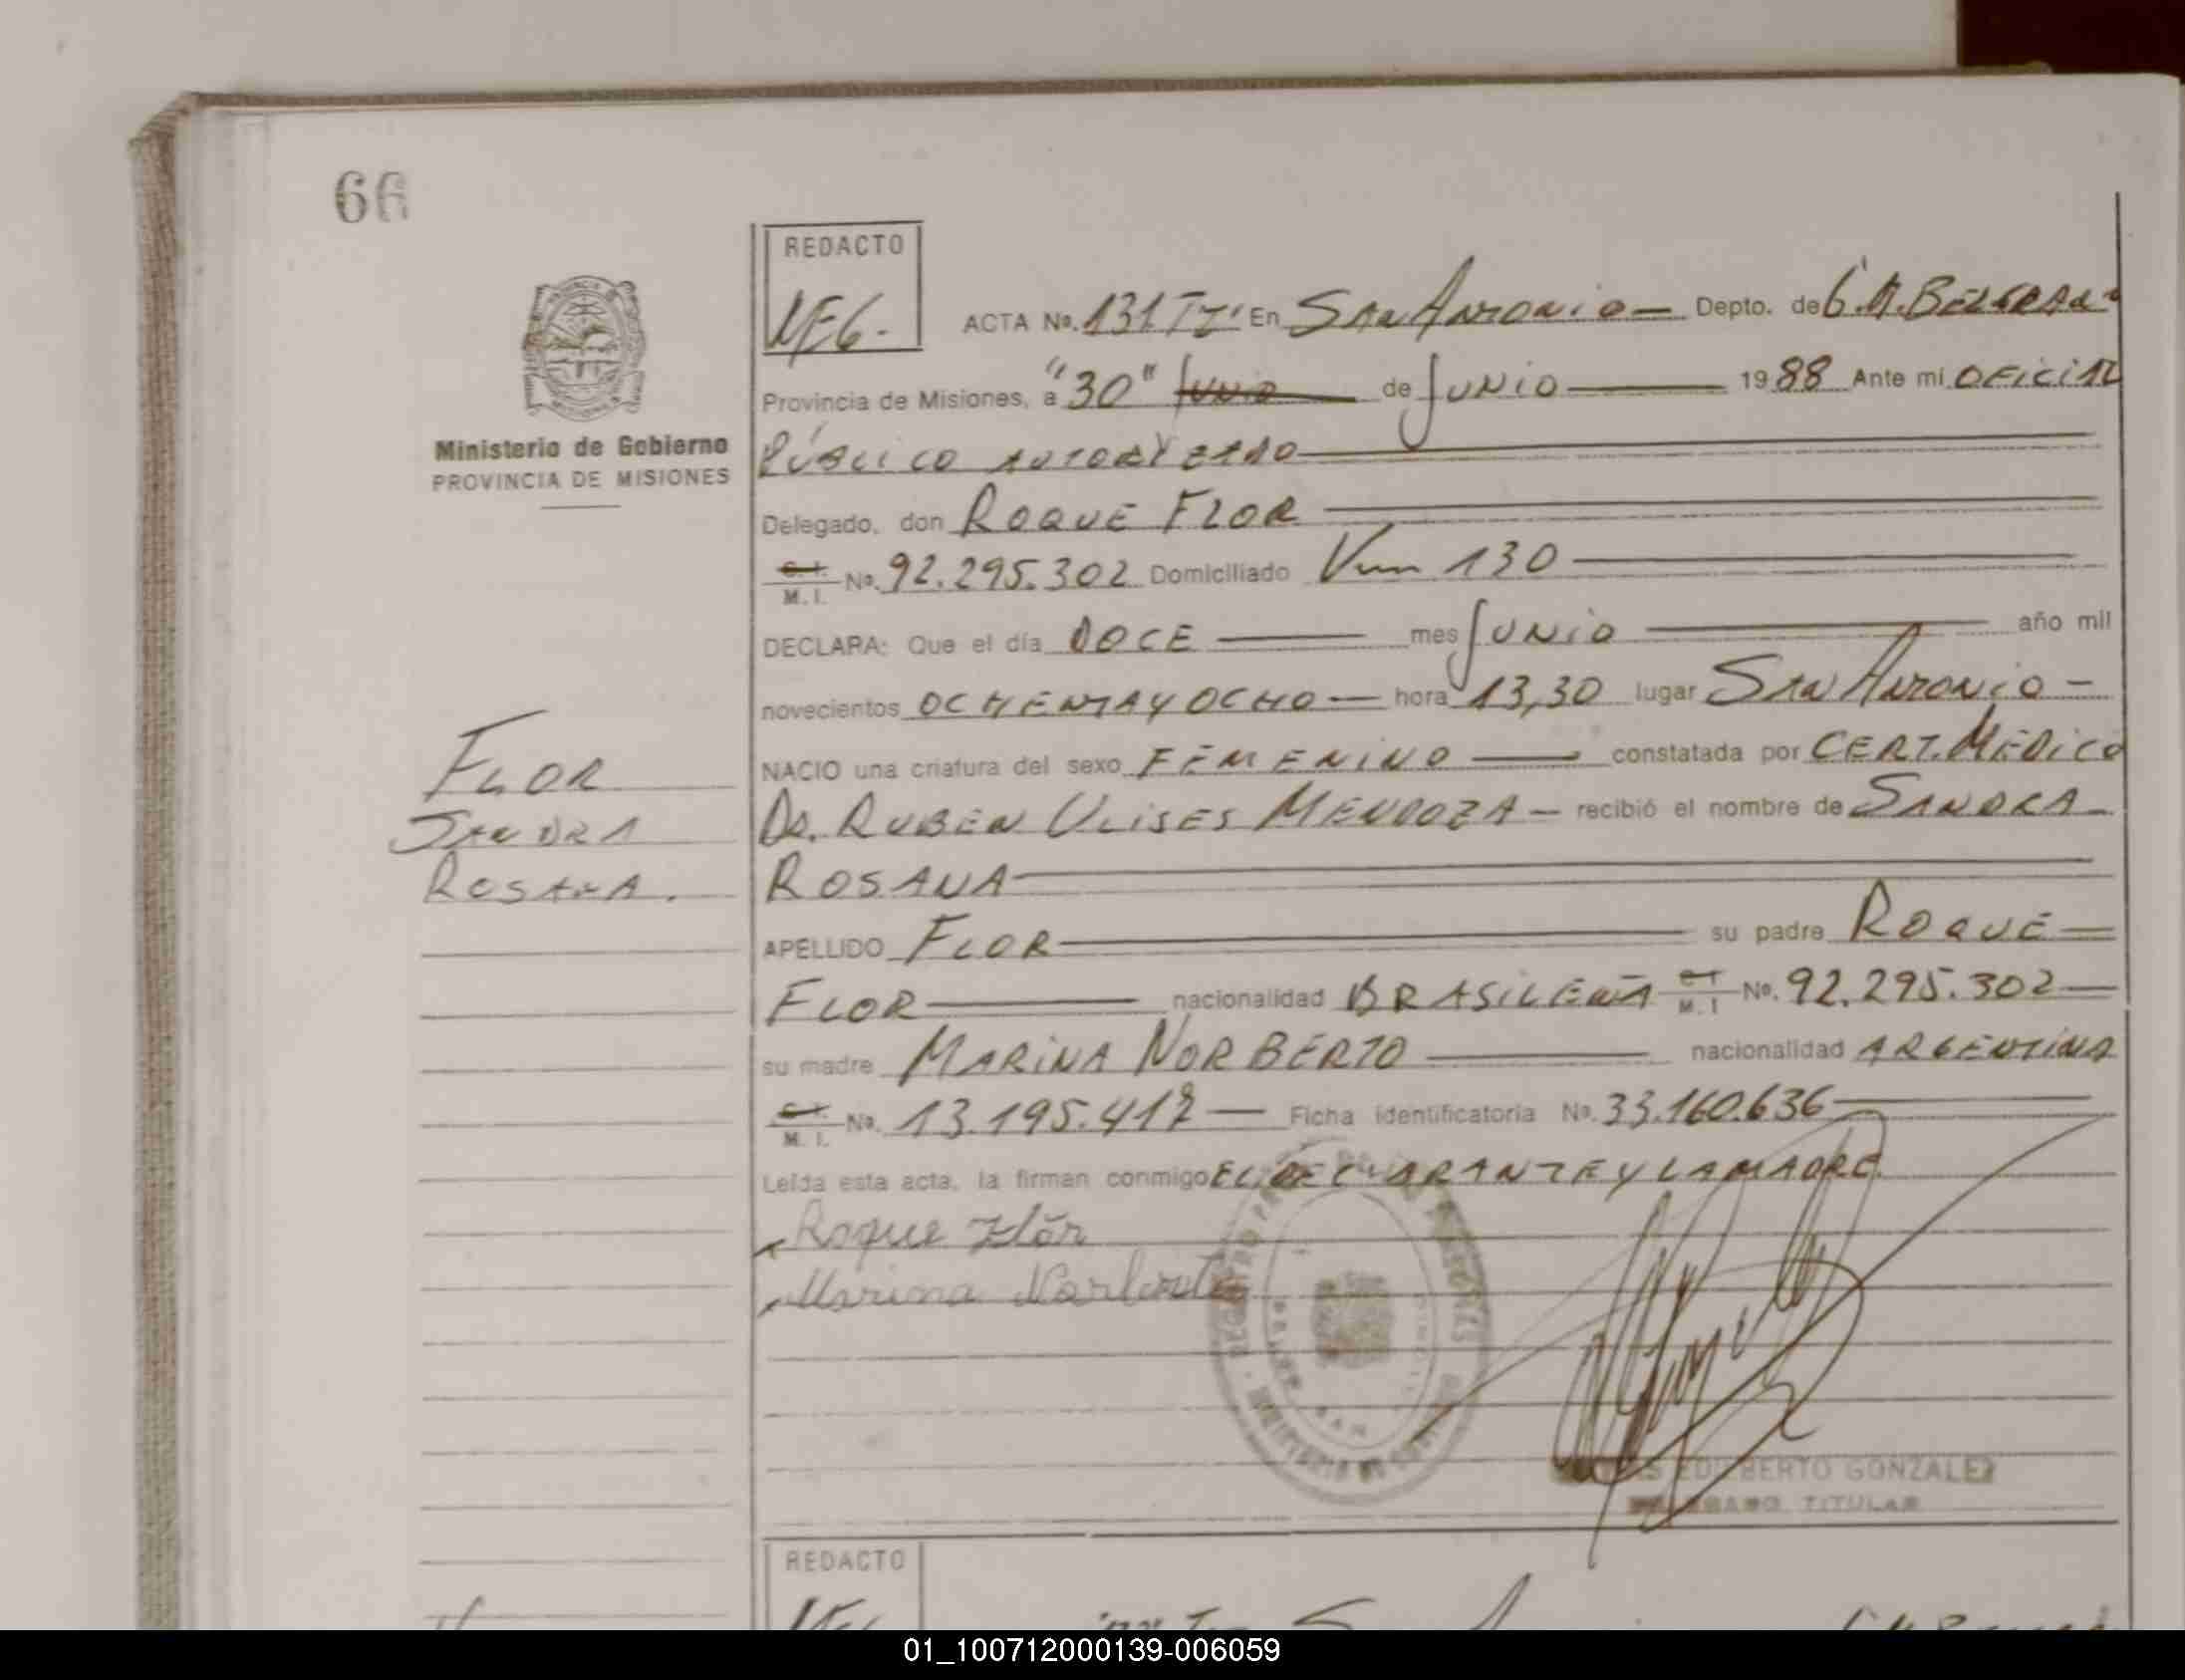 66
REDACTO
ACTA Nº. 131 En SAN ANTONIO — Depto. de G.M. BELGRANO
Provincia de Misiones, a "30" JUNIO de JUNIO 1988 Ante mi OFICIAL
PÚBLICO AUTORIZADO
Ministerio de Gobierno
PROVINCIA DE MISIONES
Delegado, don ROQUE FLOR
C. I. Nº. 92.295.302 Domiciliado 130
M. I.
DECLARA: Que el día DOCE mes JUNIO año mil
novecientos OCHENTA Y OCHO — hora 13,30 lugar SAN ANTONIO —
NACIO una criatura del sexo FEMENINO constatada por CERT. MÉDICO
DR. RUBEN ULISES MENDOZA — recibió el nombre de SANDRA
ROSANA
FLOR
SANDRA
ROSANA.
APELLIDO FLOR su padre ROQUE
FLOR nacionalidad BRASILEÑA C I M. I Nº. 92.295.302
su madre MARINA NORBERTO nacionalidad ARGENTINA
C. I. Nº. 13.195.417 — Ficha identificatoria Nº. 33.160.636
M. I.
Leída esta acta, la firman conmigo EL DECLARANTE Y LA MADRE
Roque Flôr
Marina Norberto
EDILBERTO GONZALEZ
TITULAR
REDACTO
01_100712000139-006059